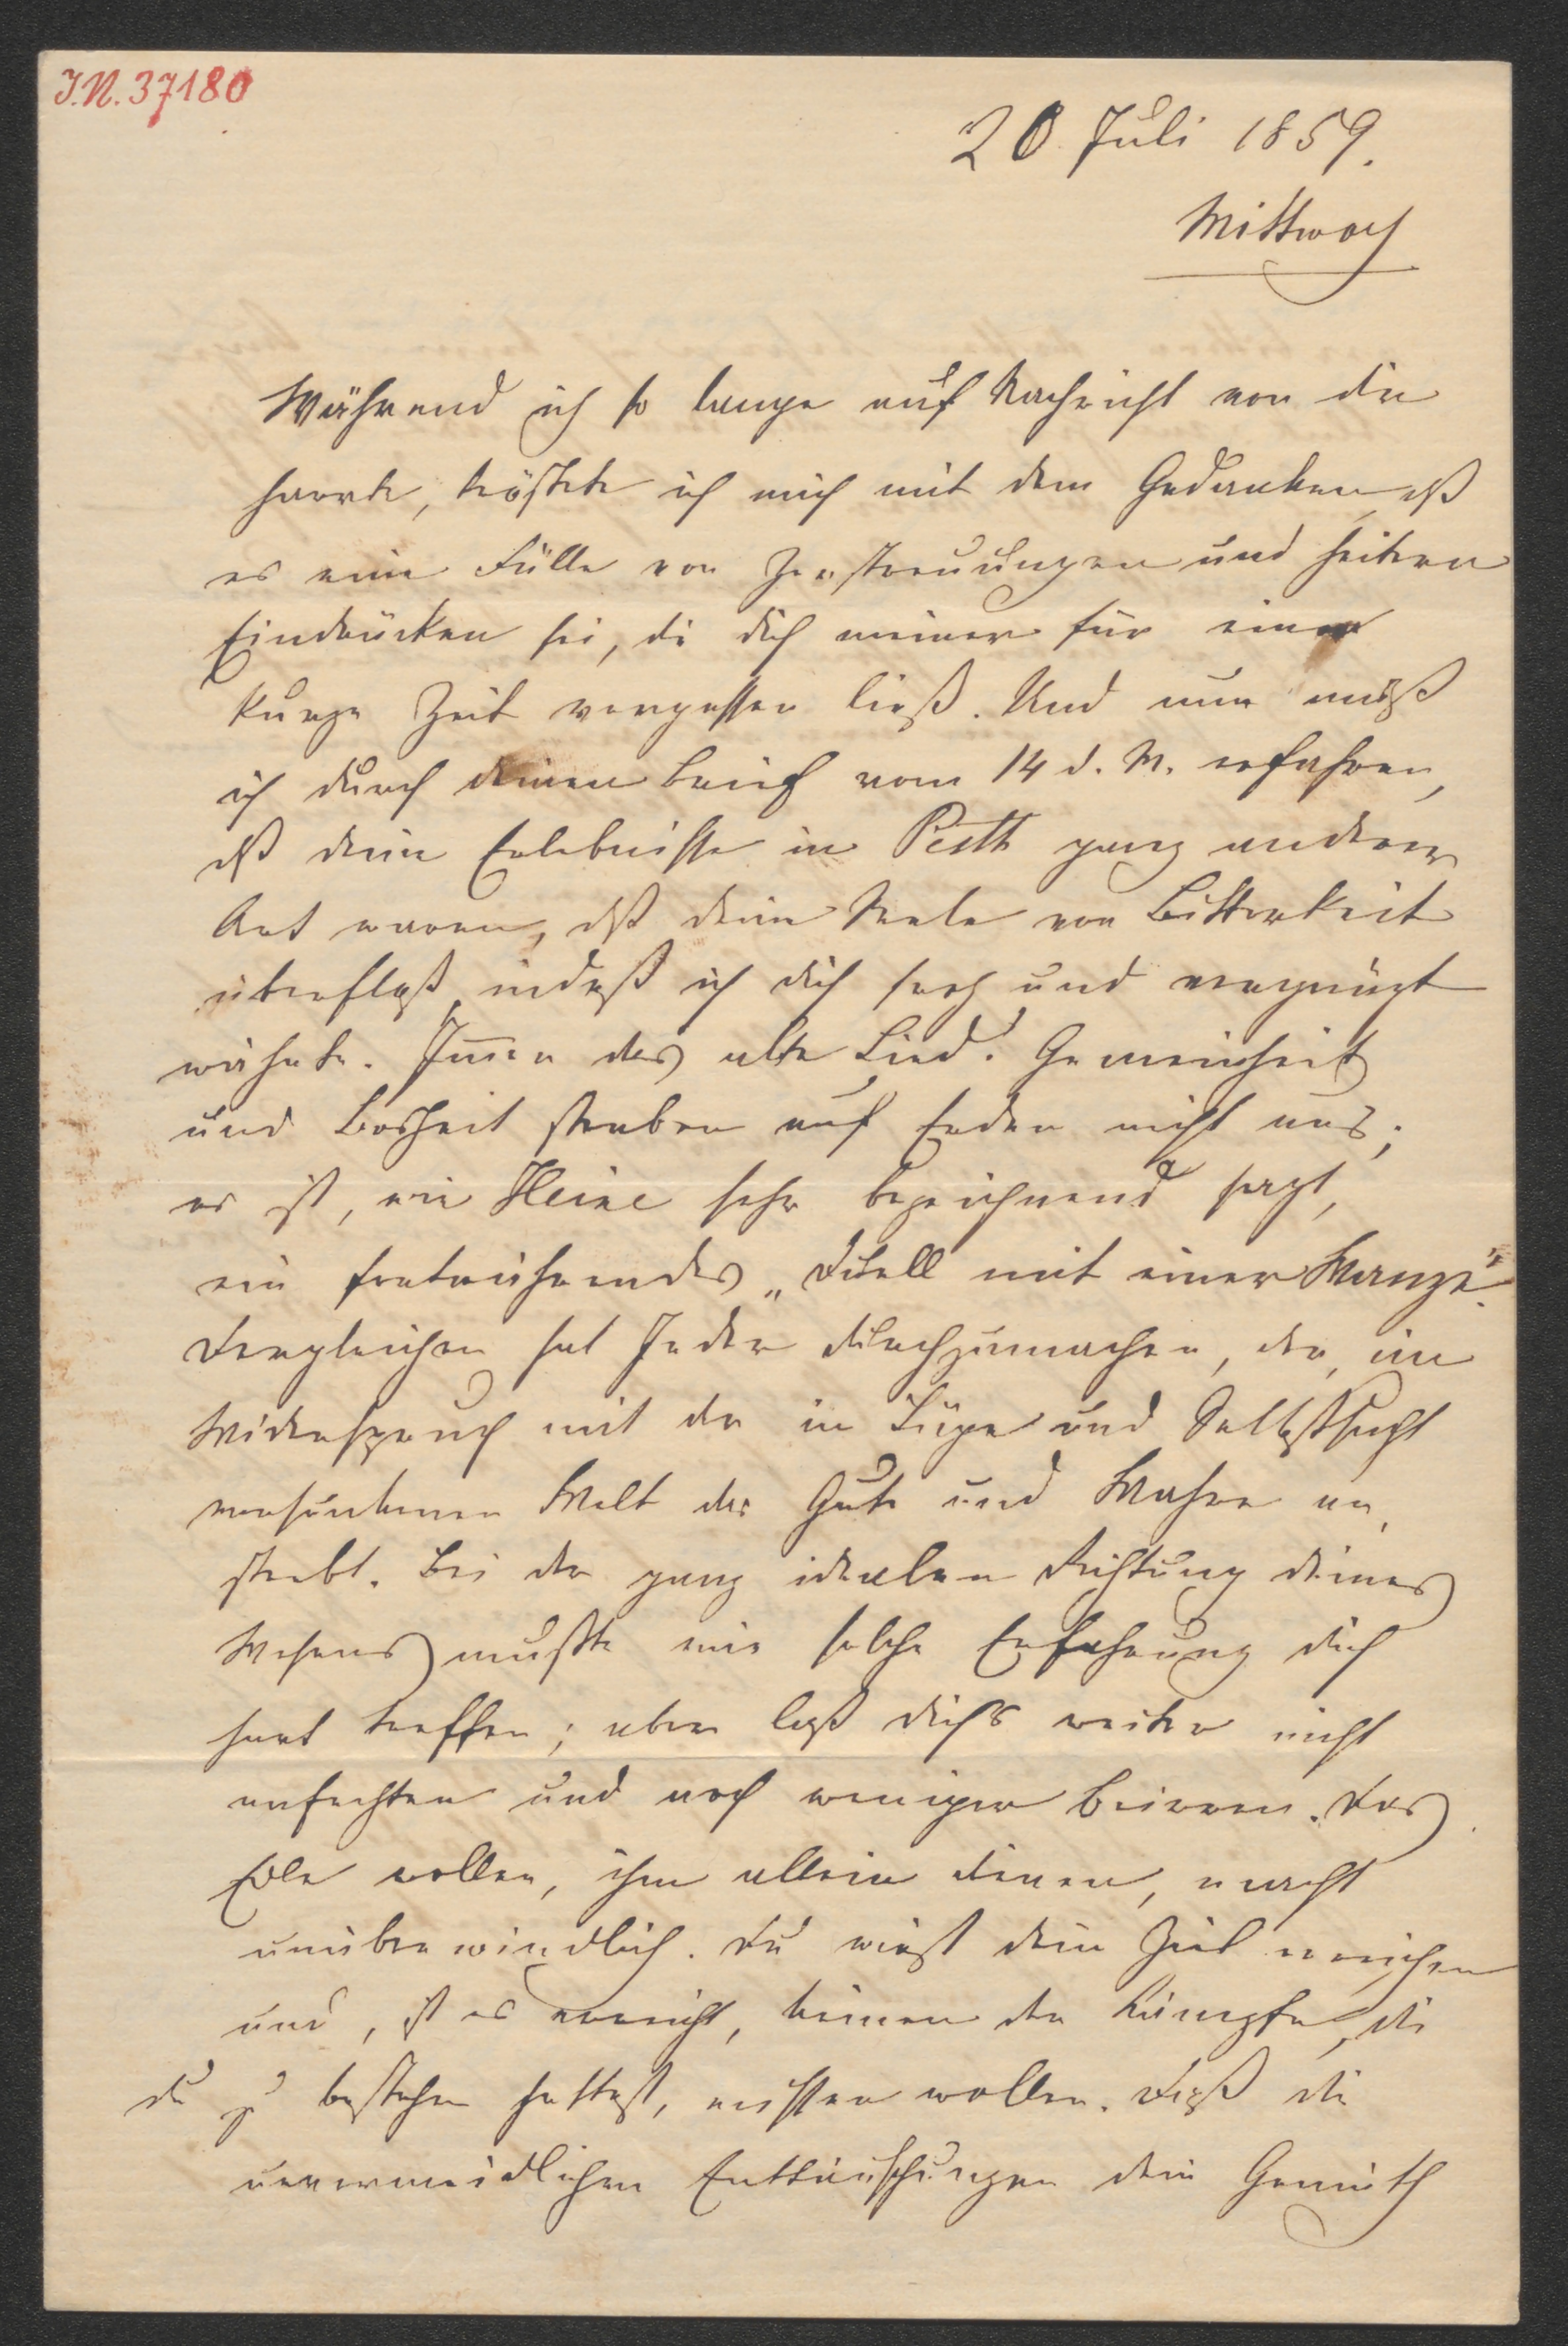 J.N. 37180
20 Juli 1859.
Mittwoch
Während ich so lange auf Nachricht von dir
harrte, tröstete ich mich mit dem Gedanken, dß
es eine Fülle von Zerstreuungen und heitern
Eindrücken sei, die dich meiner für eine
kurze Zeit vergessen ließ. Und nun muß
ich durch deinen Brief vom 14 d. M. erfahren,
dß deine Erlebnisse in Pesth ganz anderer
Art waren, dß deine Seele von Bitterkeit
überfloß, indeß ich dich froh und vergnügt
wähnte. Im̄er das alte Lied! Gemeinheit
und Bosheit sterben auf Erden nicht aus;
es ist, wie Heine sehr bezeichnend sagt,
ein fortwährendes „Duell mit einer Wanze“.
Dergleichen hat Jeder durchzumachen, der im
Widerspruch mit der in Lüge und Selbstsucht
versunkenen Welt das Gute und Wahre an-
strebt. Bei der ganz idealen Richtung deines
Wesens mußte eine solche Erfahrung dich
hart treffen; aber laß dich's weiter nicht
anfechten und noch weniger beirren. Das
Edle wollen, ihm allein dienen, macht
unüberwindlich. Du wirst dein Ziel erreichen
und, ist es erreicht, keinen der Kämpfe, die
du zu bestehen hattest, missen wollen. Daß die
unvermeidlichen Enttäuschungen dein Gemüth